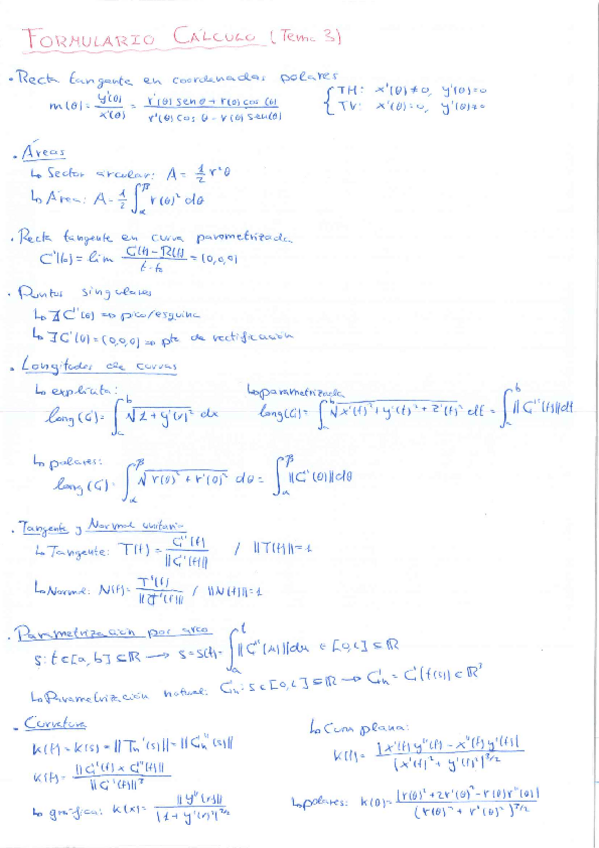 FORMULARIO CÁLCULO (Tema 3)
• Recta tangente en coordenadas polares
m(θ) = y'(θ)/x'(θ) = r'(θ) sen θ + r(θ) cos(θ) / r'(θ) cos θ - r(θ) sen(θ)
{ TH: x'(θ) ≠ 0, y'(θ) = 0
TV: x'(θ) = 0, y'(θ) ≠ 0
• Áreas
↳ Sector circular: A = 1/2 r² θ
↳ Área: A = 1/2 ∫_α^β r(θ)² dθ
• Recta tangente en curva parametrizada
C'(t₀) = lim C(t) - R(t) / t - t₀ = (0,0,0)
• Puntos singulares
↳ ∄ C'(t) => pico/esquina
↳ ∃ C'(t) = (0,0,0) => pto de rectificación
• Longitudes de curvas
↳ explícita:
long(C) = ∫_a^b √1 + y'(x)² dx
↳ parametrizada
long(C) = ∫_a^b √x'(t)² + y'(t)² + z'(t)² dt = ∫_a^b ||C'(t)|| dt
↳ polares:
long(C) = ∫_α^β √r(θ)² + r'(θ)² dθ = ∫_α^β ||C'(θ)|| dθ
• Tangente y Normal unitaria
↳ Tangente: T(t) = C'(t) / ||C'(t)|| / ||T(t)|| = 1
↳ Normal: N(t) = T'(t) / ||T'(t)|| / ||N(t)|| = 1
• Parametrización por arco
s: t ∈ [a, b] ⊆ ℝ → s = s(t) = ∫_a^t ||C'(u)|| du ∈ [0, L] ⊆ ℝ
↳ Parametrización natural: Cn: s ∈ [0, L] ⊆ ℝ → Cn = C(t(s)) ∈ ℝ³
• Curvatura
k(t) = k(s) = ||Tn'(s)|| = ||Cn''(s)||
k(t) = ||C'(t) x C''(t)|| / ||C'(t)||³
↳ gráfica: k(x) = ||y''(x)|| / [1 + y'(x)²]^3/2
↳ Curva plana:
k(t) = |x'(t) y''(t) - x''(t) y'(t)| / [x'(t)² + y'(t)²]^3/2
↳ polares: k(θ) = |r(θ)² + 2r'(θ)² - r(θ) r''(θ)| / (r(θ)² + r'(θ)²)^3/2